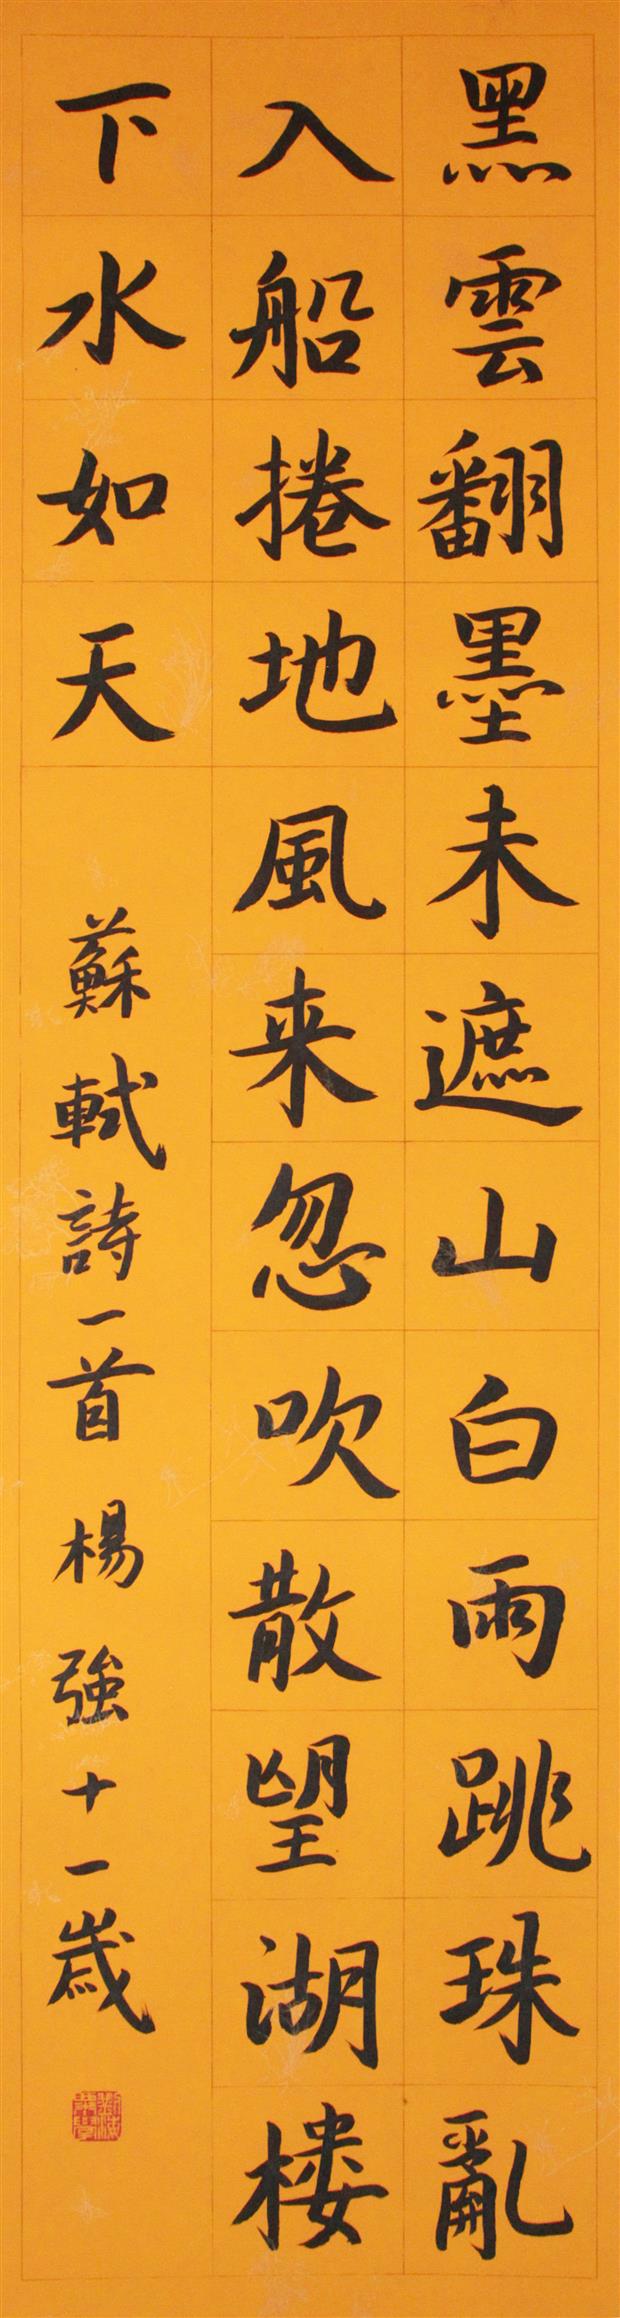 黑雲翻墨未遮山白雨跳珠亂
入船捲地風来忽吹散望湖楼
下水如天
蘇軾詩一首 楊強十一歲